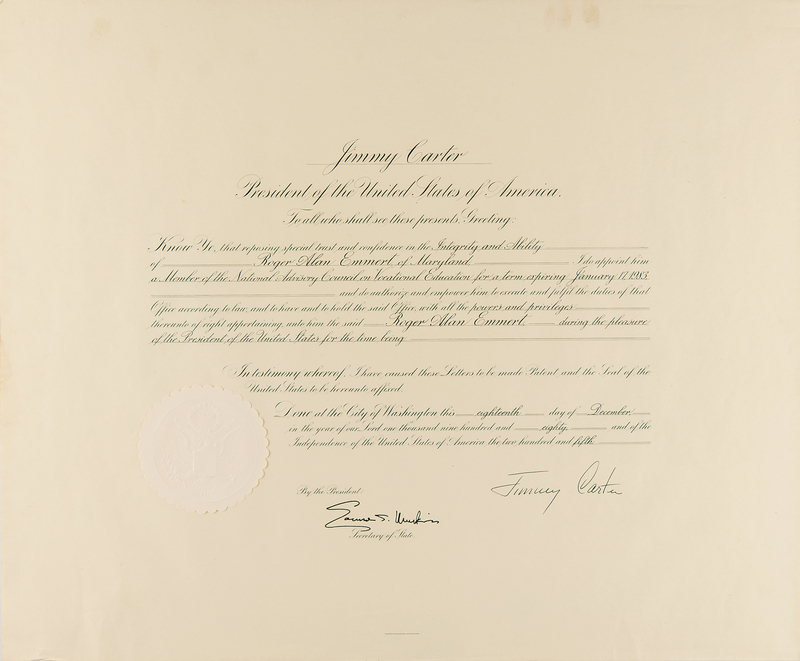 Jimmy Carter
President of the United States of America.
To all who shall see these presents, Greeting:
Know Ye, that reposing special trust and confidence in the Integrity and Ability
of Roger Alan Emmert, of Maryland, I do appoint him
a Member of the National Advisory Council on Vocational Education for a term expiring January 17, 1983,
and do authorize and empower him to execute and fulfil the duties of that
Office according to law, and to have and to hold the said Office, with all the powers and privileges
thereunto of right appertaining, unto him the said Roger Alan Emmert, during the pleasure
of the President of the United States for the time being.
In testimony whereof, I have caused these Letters to be made Patent and the Seal of the
United States to be hereunto affixed.
Done at the City of Washington this eighteenth day of December,
in the year of our Lord one thousand nine hundred and eighty, and of the
Independence of the United States of America the two hundred and fifth.
By the President:
Jimmy Carter
Edmund S. Muskie
Secretary of State